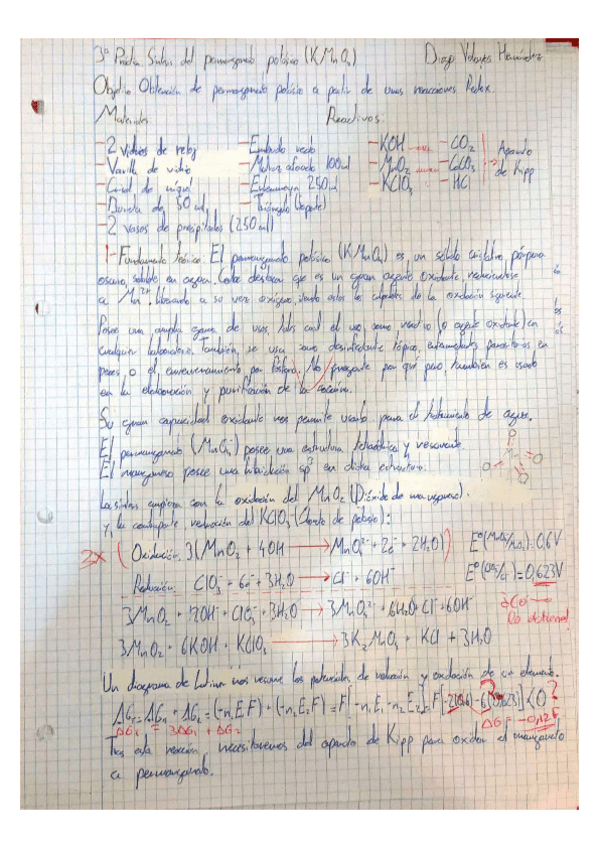 3ª Práctica Síntesis del permanganato potásico (KMnO₄) Diego Hernández
Objetivo Obtención de permanganato potásico a partir de unas reacciones Redox.
Materiales Reactivos:
- 2 vidrios de reloj - Embudo - KOH - CO₂ Aparato
- Varilla de vidrio - Matraz aforado 100ml - MnO₂ - CaCO₃ de Kipp
- Crisol de níquel - Erlenmeyer 250ml - KClO₃ - HCl
- Bureta de 50ml - Triángulo (soporte)
- 2 vasos de precipitados (250ml)
1- Fundamento teórico: El permanganato potásico (KMnO₄) es un sólido cristalino, púrpura
oscuro, soluble en agua. Cabe destacar que es un gran agente oxidante, reduciéndose
a Mn²⁺, liberando a su vez oxígeno, de la oxidación
Posee una amplia gama de usos, tales cual el uso como reactivo (o agente oxidante) en
cualquier laboratorio. También, se usa como desinfectante tópico, enfermedades parasitarias en
peces, o el envenenamiento por fósforo. No pregunte por qué pero, también es usado
en la elaboración y purificación de la cocaína.
Su gran capacidad oxidante nos permite usarlo para el tratamiento de aguas.
El permanganato (MnO₄⁻) posee una estructura tetraédrica y resonante.
El manganeso posee una hibridación sp³ en dicha estructura.
La síntesis empieza con la oxidación del MnO₂ (Dióxido de manganeso).
y, la reducción del KClO₃ (Clorato de potasio):
2x ( Oxidación: 3(MnO₂ + 4OH⁻ → MnO₄²⁻ + 2e⁻ + 2H₂O) ) E⁰(MnO₄²⁻/MnO₂) = 0,6V
Reducción: ClO₃⁻ + 6e⁻ + 3H₂O → Cl⁻ + 6OH⁻ E⁰(ClO₃⁻/Cl⁻) = 0,623V
3MnO₂ + 12OH⁻ + ClO₃⁻ + 3H₂O → 3MnO₄²⁻ + 6H₂O + Cl⁻ + 6OH⁻
3MnO₂ + 6KOH + KClO₃ → 3K₂MnO₄ + KCl + 3H₂O
Un diagrama de Latimer nos resume los potenciales de reducción y oxidación de un elemento.
ΔG₃ = ΔG₁ + ΔG₂ = (-n₁E₁F) + (-n₂E₂F) = F[-n₁E₁ - n₂E₂] = F[-2(0,6) - 6(0,623)] < 0 ?
ΔG₃ = 3ΔG₁ + ΔG₂ ΔG =
Tras esta reacción, necesitaremos del aparato de Kipp para oxidar el manganato
a permanganato.